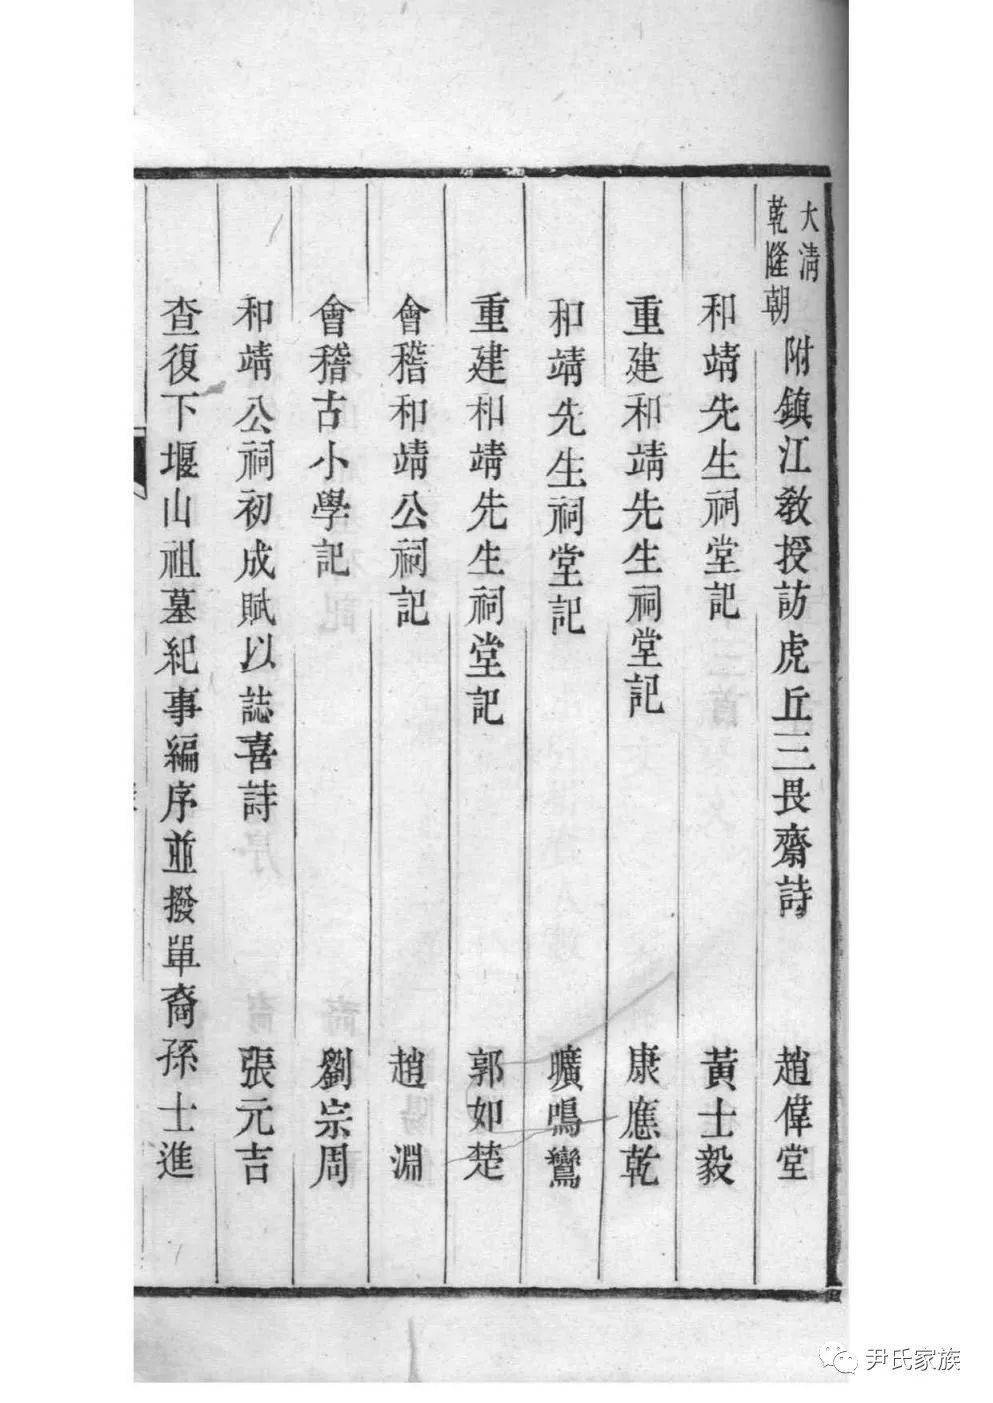 大清
乾隆朝
附鎮江教授訪虎丘三畏齋詩 趙偉堂
和靖先生祠堂記 黃士毅
重建和靖先生祠堂記 康應乾
和靖先生祠堂記 曠鳴鸞
重建和靖先生祠堂記 郭如楚
會稽和靖公祠記 趙淵
會稽古小學記 劉宗周
和靖公祠初成賦以誌喜詩 張元吉
查復下堰山祖墓紀事編序並撥單裔孫士進
尹氏家族